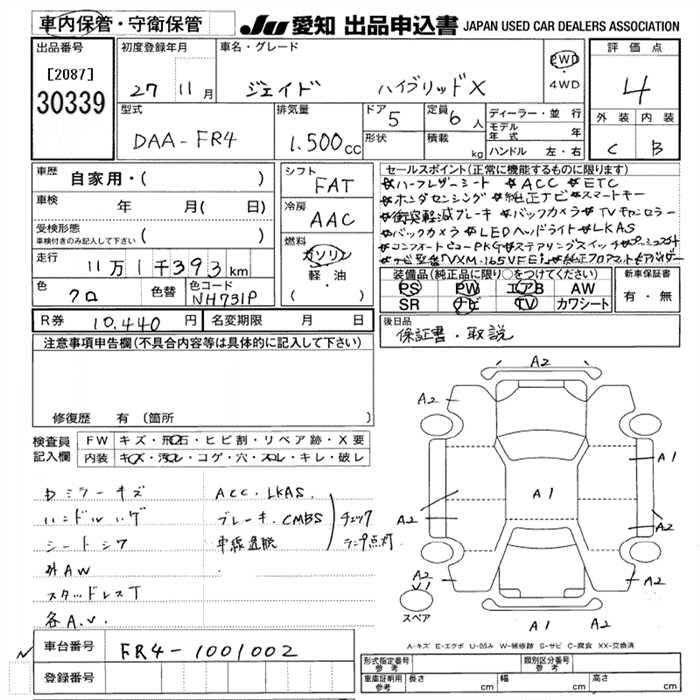 車内保管・守衛保管
JU 愛知 出品申込書 JAPAN USED CAR DEALERS ASSOCIATION
出品番号
[2087]
30339
初度登録年月
27 11月
車名・グレード
ジェイド ハイブリッドX
2WD
・
4WD
評価点
4
外装 内装
C B
型式
DAA-FR4
排気量
1.500cc
ドア 5
形状
定員 6人
積載 kg
ディーラー・並行
モデル年式 年
ハンドル 左・右
車歴
自家用・( )
車検
年 月( 日)
受検形態
車検付きのみ記入して下さい ( )
走行
11万1千393km
色
クロ
色替
色コード
NH731P
シフト
FAT
冷房
AAC
燃料
ガソリン
・
軽・油
( )
セールスポイント(正常に機能するものに限ります)
☆ハーフレザーシート ☆ACC ☆ETC
☆ホンダセンシング ☆純正ナビ☆スマートキー
☆衝突軽減ブレーキ ☆バックカメラ ☆TVキャンセラー
☆バックカメラ ☆LEDヘッドライト ☆LKAS
☆コンフォートビューPKG☆ステアリングスイッチ☆プッシュスタート
☆ナビ型番VXM-165VFEi ☆純正フロアマット☆ドアバイザー
装備品(純正品に限り○をつけてください)
PS PW エアB AW
SR ナビ TV カワシート
新車保証書
有・無
R券 10.440 円
名変期限 月 日
後日品
保証書・取説
注意事項申告欄(不具合内容等は具体的に記入して下さい)
修復歴 有(箇所 )
検査員記入欄
FW キズ・飛石・ヒビ割・リペア跡・X要
内装 キズ・汚レ・コゲ・穴・スレ・キレ・破レ
ハンドルハゲ
シートシワ
外AW
スタッドレスT
各A.U.
ACC・LKAS.
ブレーキ・CMBS
車線逸脱
チェック
ランプ点灯
A2
A2
A2
A1
A1
A2
A2
A2
A2
V
A1
A1
A2
スペア
A-キズ E-エクボ U-凹み W-補修跡 S-サビ C-腐食 XX-交換済
車台番号
FR4-1001002
登録番号
形式指定番号
参考
類別区分番号
参考
車庫証明用
参考
長さ cm
幅 cm
高さ cm